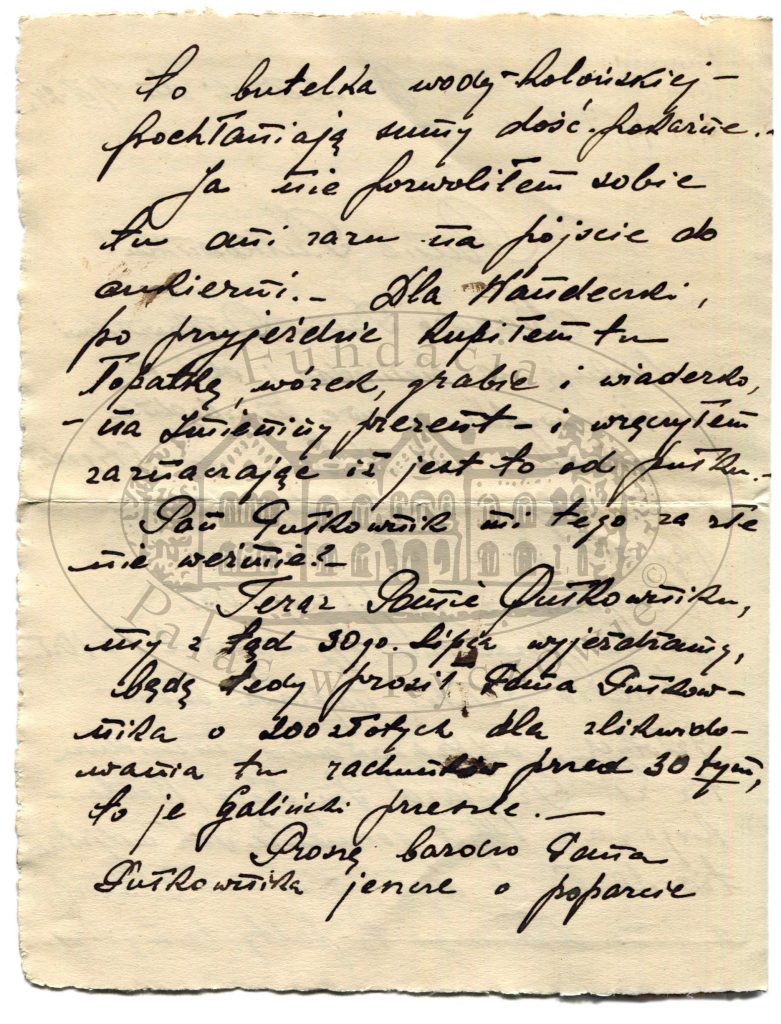 to butelka wody-kolońskiej –
pochłaniają sumy dość pokaźne. –
Ja nie pozwoliłem sobie
tu ani razu na pójście do
cukierni. – Dla Wandeczki,
po przyjeździe kupiłem tu
łopatkę, wórek, grabie i wiaderko,
– na Imieniny prezent – i wręczyłem
zaznaczając iż jest to od pułku. –
Pan Pułkownik mi tego za złe
nie weźmie? –
Teraz Panie Pułkowniku,
my z tąd 30go. Lipca wyjeżdżamy,
będę tedy prosił Pana Pułkow-
nika o 200 złotych dla zlikwido-
wania tu rachunków przed 30 tym,
to je Galiński prześle. –
Proszę bardzo Pana
Pułkownika jeszcze o poparcie
Fundacja
Pałac w
©